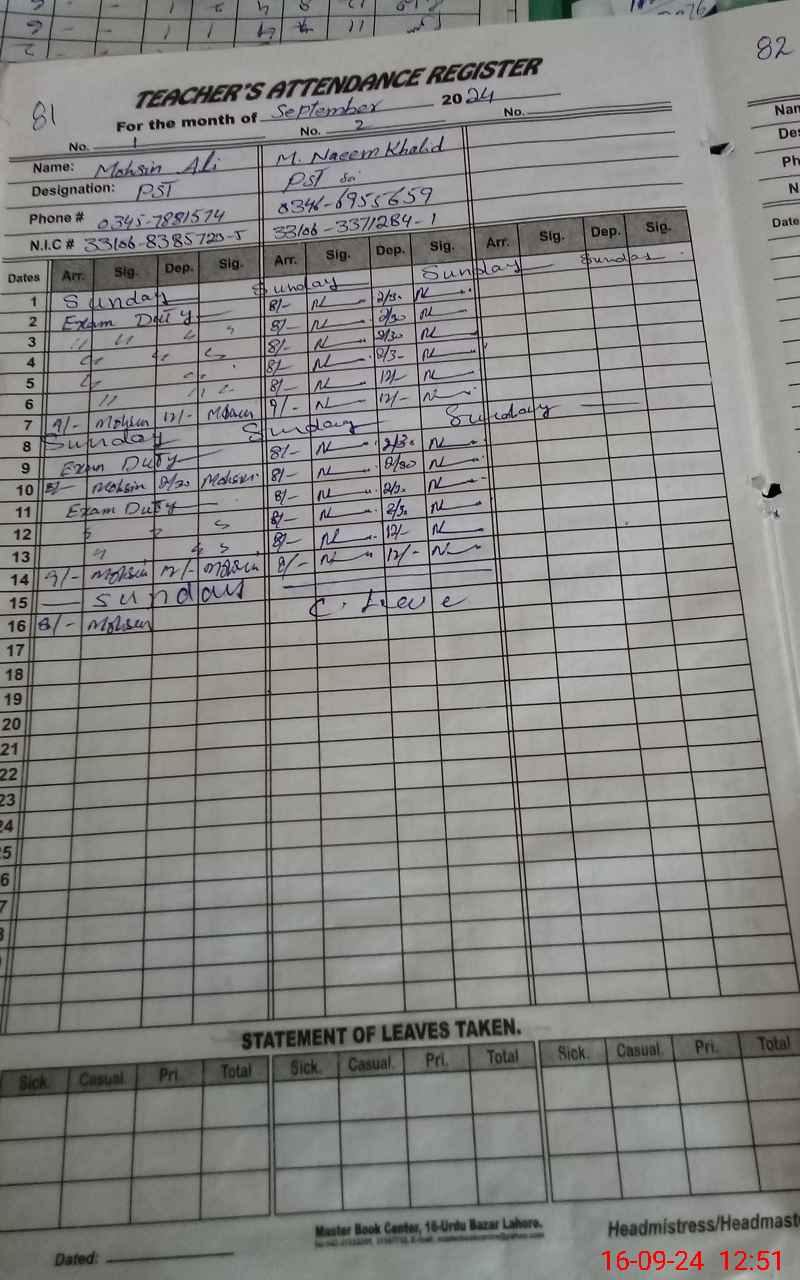 81
82
TEACHER'S ATTENDANCE REGISTER
For the month of September 2024
No. 1 No. 2 No.
Name: Mohsin Ali M. Naeem Khalid
Designation: PST PST
Phone # 0345-7881574 0346-6955659
N.I.C # 33106-8385729-5 33106-3371284-1
Dates Arr. Sig. Dep. Sig. Arr. Sig. Dep. Sig. Arr. Sig. Dep. Sig.
1 Sunday Sunday Sunday Sunday
2 Exam Duty 8/- 2/30
3 " " " " 8/- 2/30
4 8/- 2/30
5 8/- 2/30
6 8/- 12/-
7 9/- Mohsin 12/- Mohsin 9/- 12/-
8 Sunday Sunday Sunday
9 Exam Duty 8/- 2/30
10 8/- Mohsin 2/30 Mohsin 8/- 2/30
11 Exam Duty 8/- 2/30
12 8/- 2/30
13 8/- 12/-
14 9/- Mohsin 12/- Mohsin 9/- 12/-
15 Sunday
16 8/- Mohsin C. Leave
17
18
19
20
21
22
23
24
5
6
7
STATEMENT OF LEAVES TAKEN.
Sick. Casual Pri. Total Sick. Casual Pri. Total Sick. Casual Pri. Total
Master Book Center, 16-Urdu Bazar Lahore.
Dated: Headmistress/Headmast
16-09-24 12:51